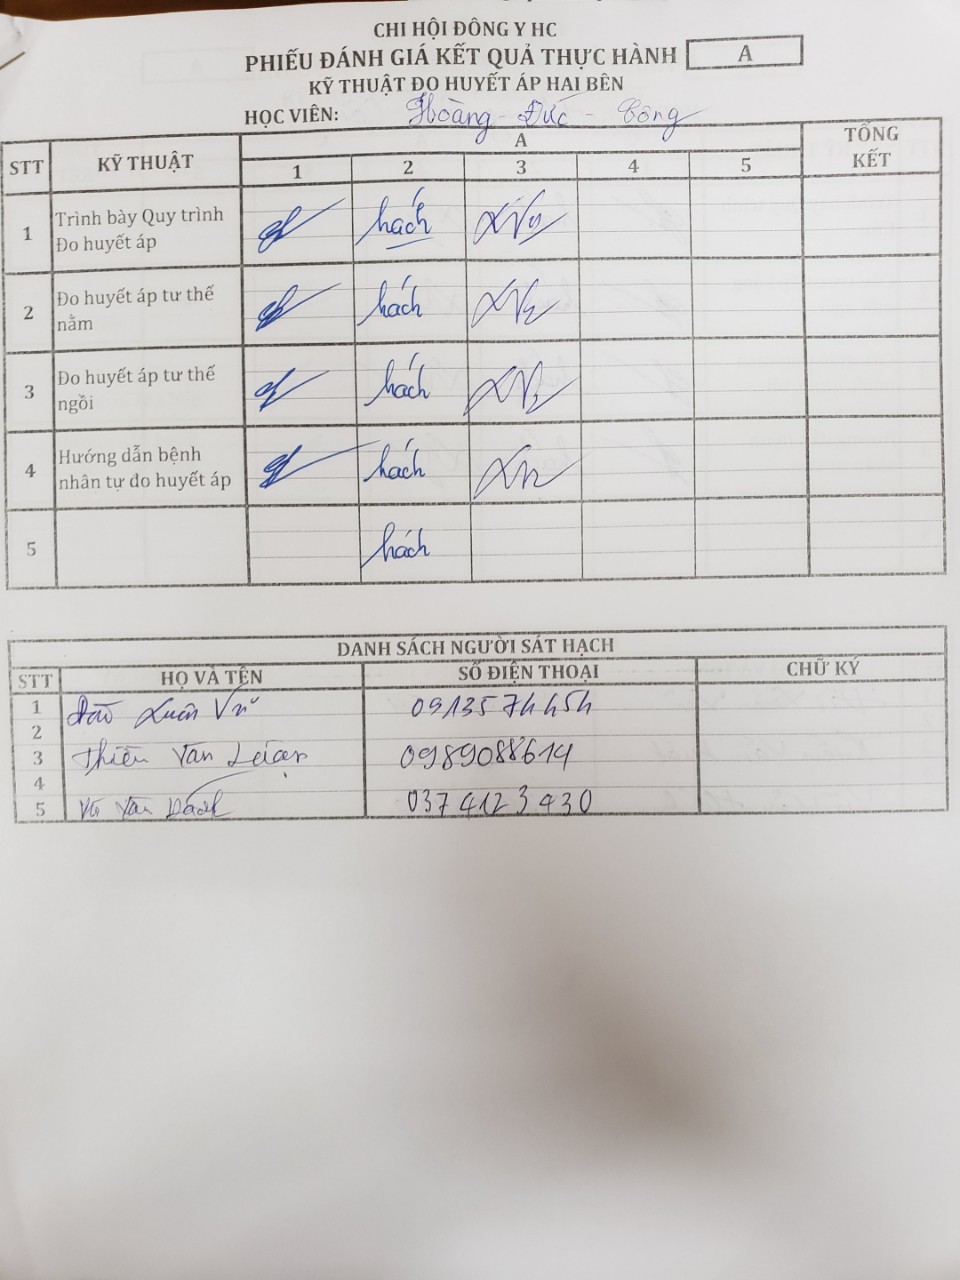 CHI HỘI ĐÔNG Y HC
PHIẾU ĐÁNH GIÁ KẾT QUẢ THỰC HÀNH A
KỸ THUẬT ĐO HUYẾT ÁP HAI BÊN
HỌC VIÊN: Hoàng - Đức - Công
STT KỸ THUẬT A TỔNG KẾT
1 2 3 4 5
1 Trình bày Quy trình Đo huyết áp hách
2 Đo huyết áp tư thế nằm hách
3 Đo huyết áp tư thế ngồi hách
4 Hướng dẫn bệnh nhân tự đo huyết áp hách
5 hách
DANH SÁCH NGƯỜI SÁT HẠCH
STT HỌ VÀ TÊN SỐ ĐIỆN THOẠI CHỮ KÝ
1 Đào Xuân Vũ 0913574454
2
3 Thiều Văn 0989088614
4
5 Vũ Văn 0374123430